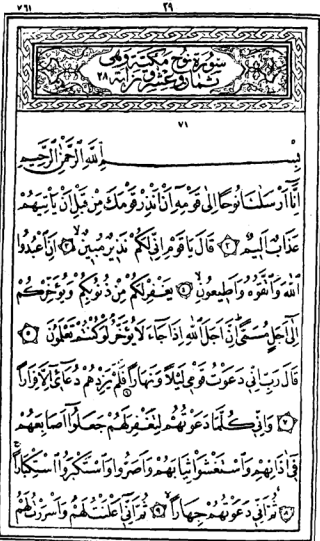 ٧٦١ ٢٩
سورة نوح مكية وهي
ثمان وعشرون آية ٢٨
٧١
بِسْمِ اللّٰهِ الرَّحْمٰنِ الرَّحِيمِ
اِنَّٓا اَرْسَلْنَا نُوحًا اِلٰى قَوْمِهٖٓ اَنْ اَنْذِرْ قَوْمَكَ مِنْ قَبْلِ اَنْ يَأْتِيَهُمْ
عَذَابٌ اَلِيمٌ ٢ قَالَ يَا قَوْمِ اِنِّى لَكُمْ نَذِيرٌ مُبِينٌ ٣ اَنِ اعْبُدُوا
اللّٰهَ وَاتَّقُوهُ وَاَطِيعُونِ يَغْفِرْ لَكُمْ مِنْ ذُنُوبِكُمْ وَيُؤَخِّرْكُمْ
اِلٰٓى اَجَلٍ مُسَمًّى اِنَّ اَجَلَ اللّٰهِ اِذَا جَٓاءَ لَا يُؤَخَّرُ لَوْ كُنْتُمْ تَعْلَمُونَ ٥
قَالَ رَبِّ اِنِّى دَعَوْتُ قَوْمِى لَيْلًا وَنَهَارًا فَلَمْ يَزِدْهُمْ دُعَٓائِٓى اِلَّا فِرَارًا
٧ وَاِنِّى كُلَّمَا دَعَوْتُهُمْ لِتَغْفِرَ لَهُمْ جَعَلُٓوا اَصَابِعَهُمْ
فِٓى اٰذَانِهِمْ وَاسْتَغْشَوْا ثِيَابَهُمْ وَاَصَرُّوا وَاسْتَكْبَرُوا اسْتِكْبَارًا
٨ ثُمَّ اِنِّى دَعَوْتُهُمْ جِهَارًا ٩ ثُمَّ اِنِّٓى اَعْلَنْتُ لَهُمْ وَاَسْرَرْتُ لَهُمْ